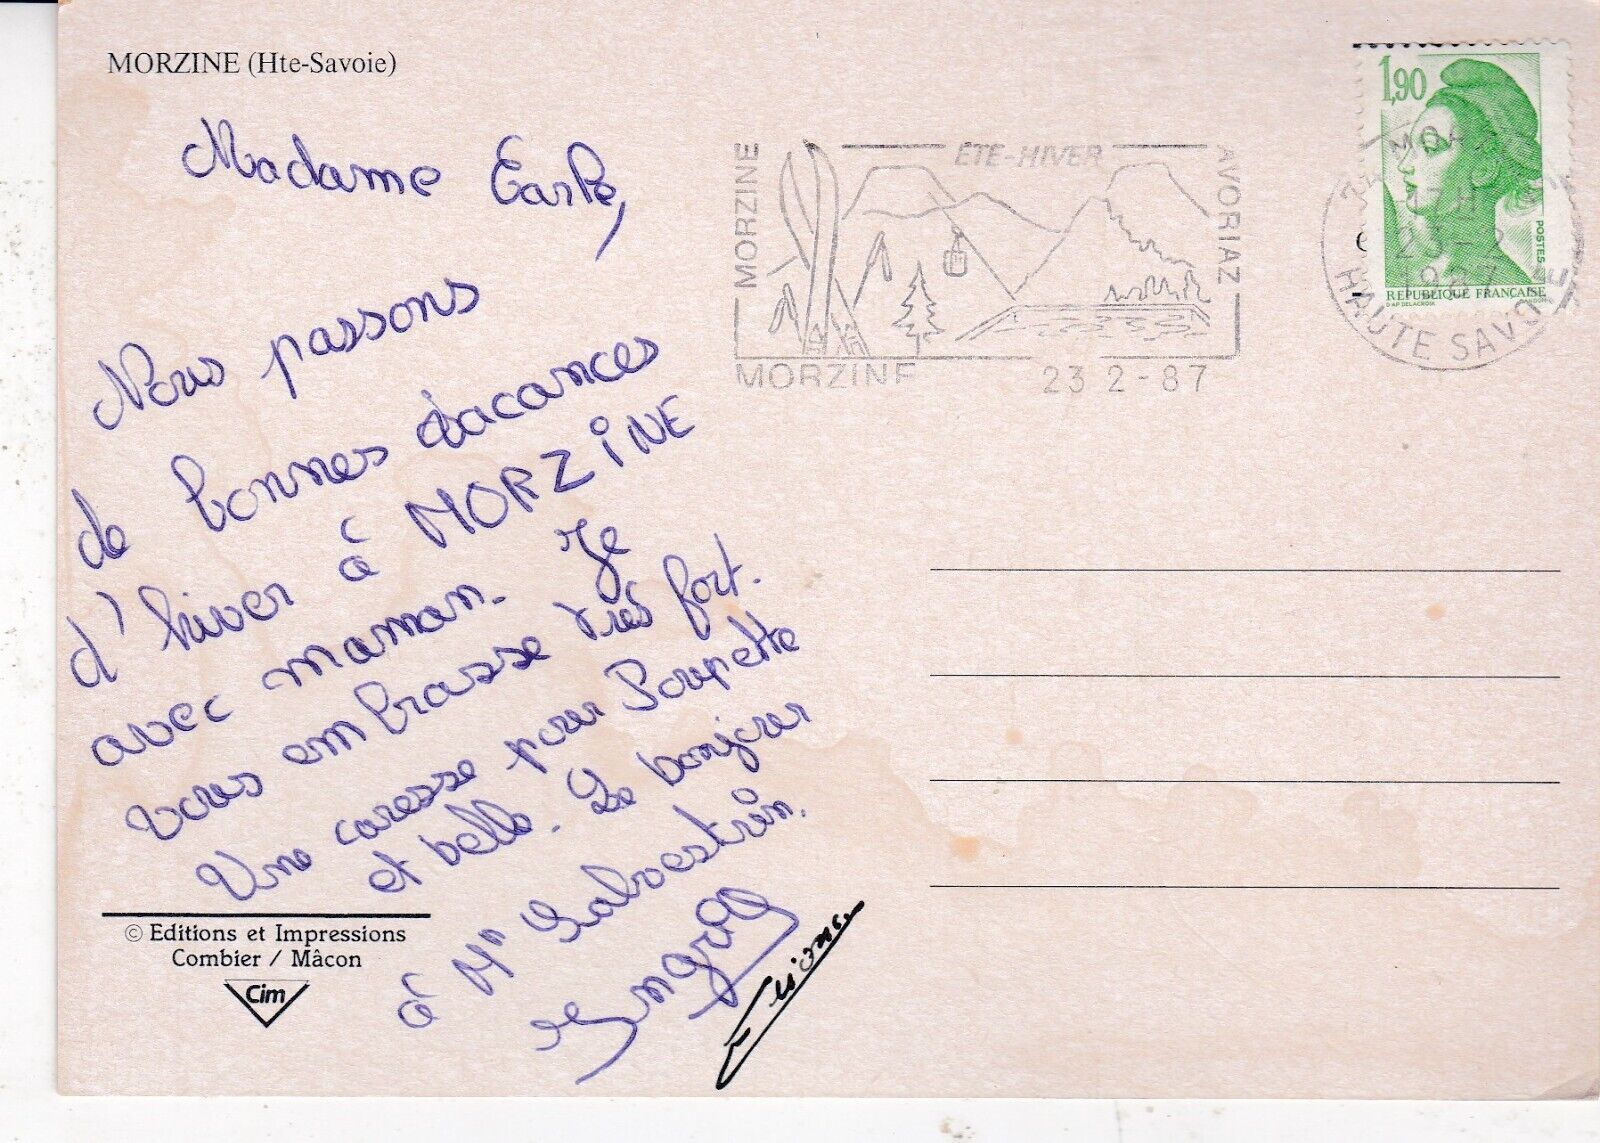 MORZINE (Hte-Savoie)
Madame
Nous passons
de bonnes vacances
d'hiver à MORZINE
avec maman. Je
vous embrasse très fort.
Une caresse pour Poupette
et belle. Le bonjour
à Mr Salvestrin.
Ingrid
© Editions et Impressions
Combier / Mâcon
Cim
MORZINE
ÉTÉ-HIVER
AVORIAZ
MORZINE
23 2 - 87
1,90
POSTES
REPUBLIQUE FRANÇAISE
D'AP DELACROIX GANDON
23-2
1987
HAUTE SAVOIE